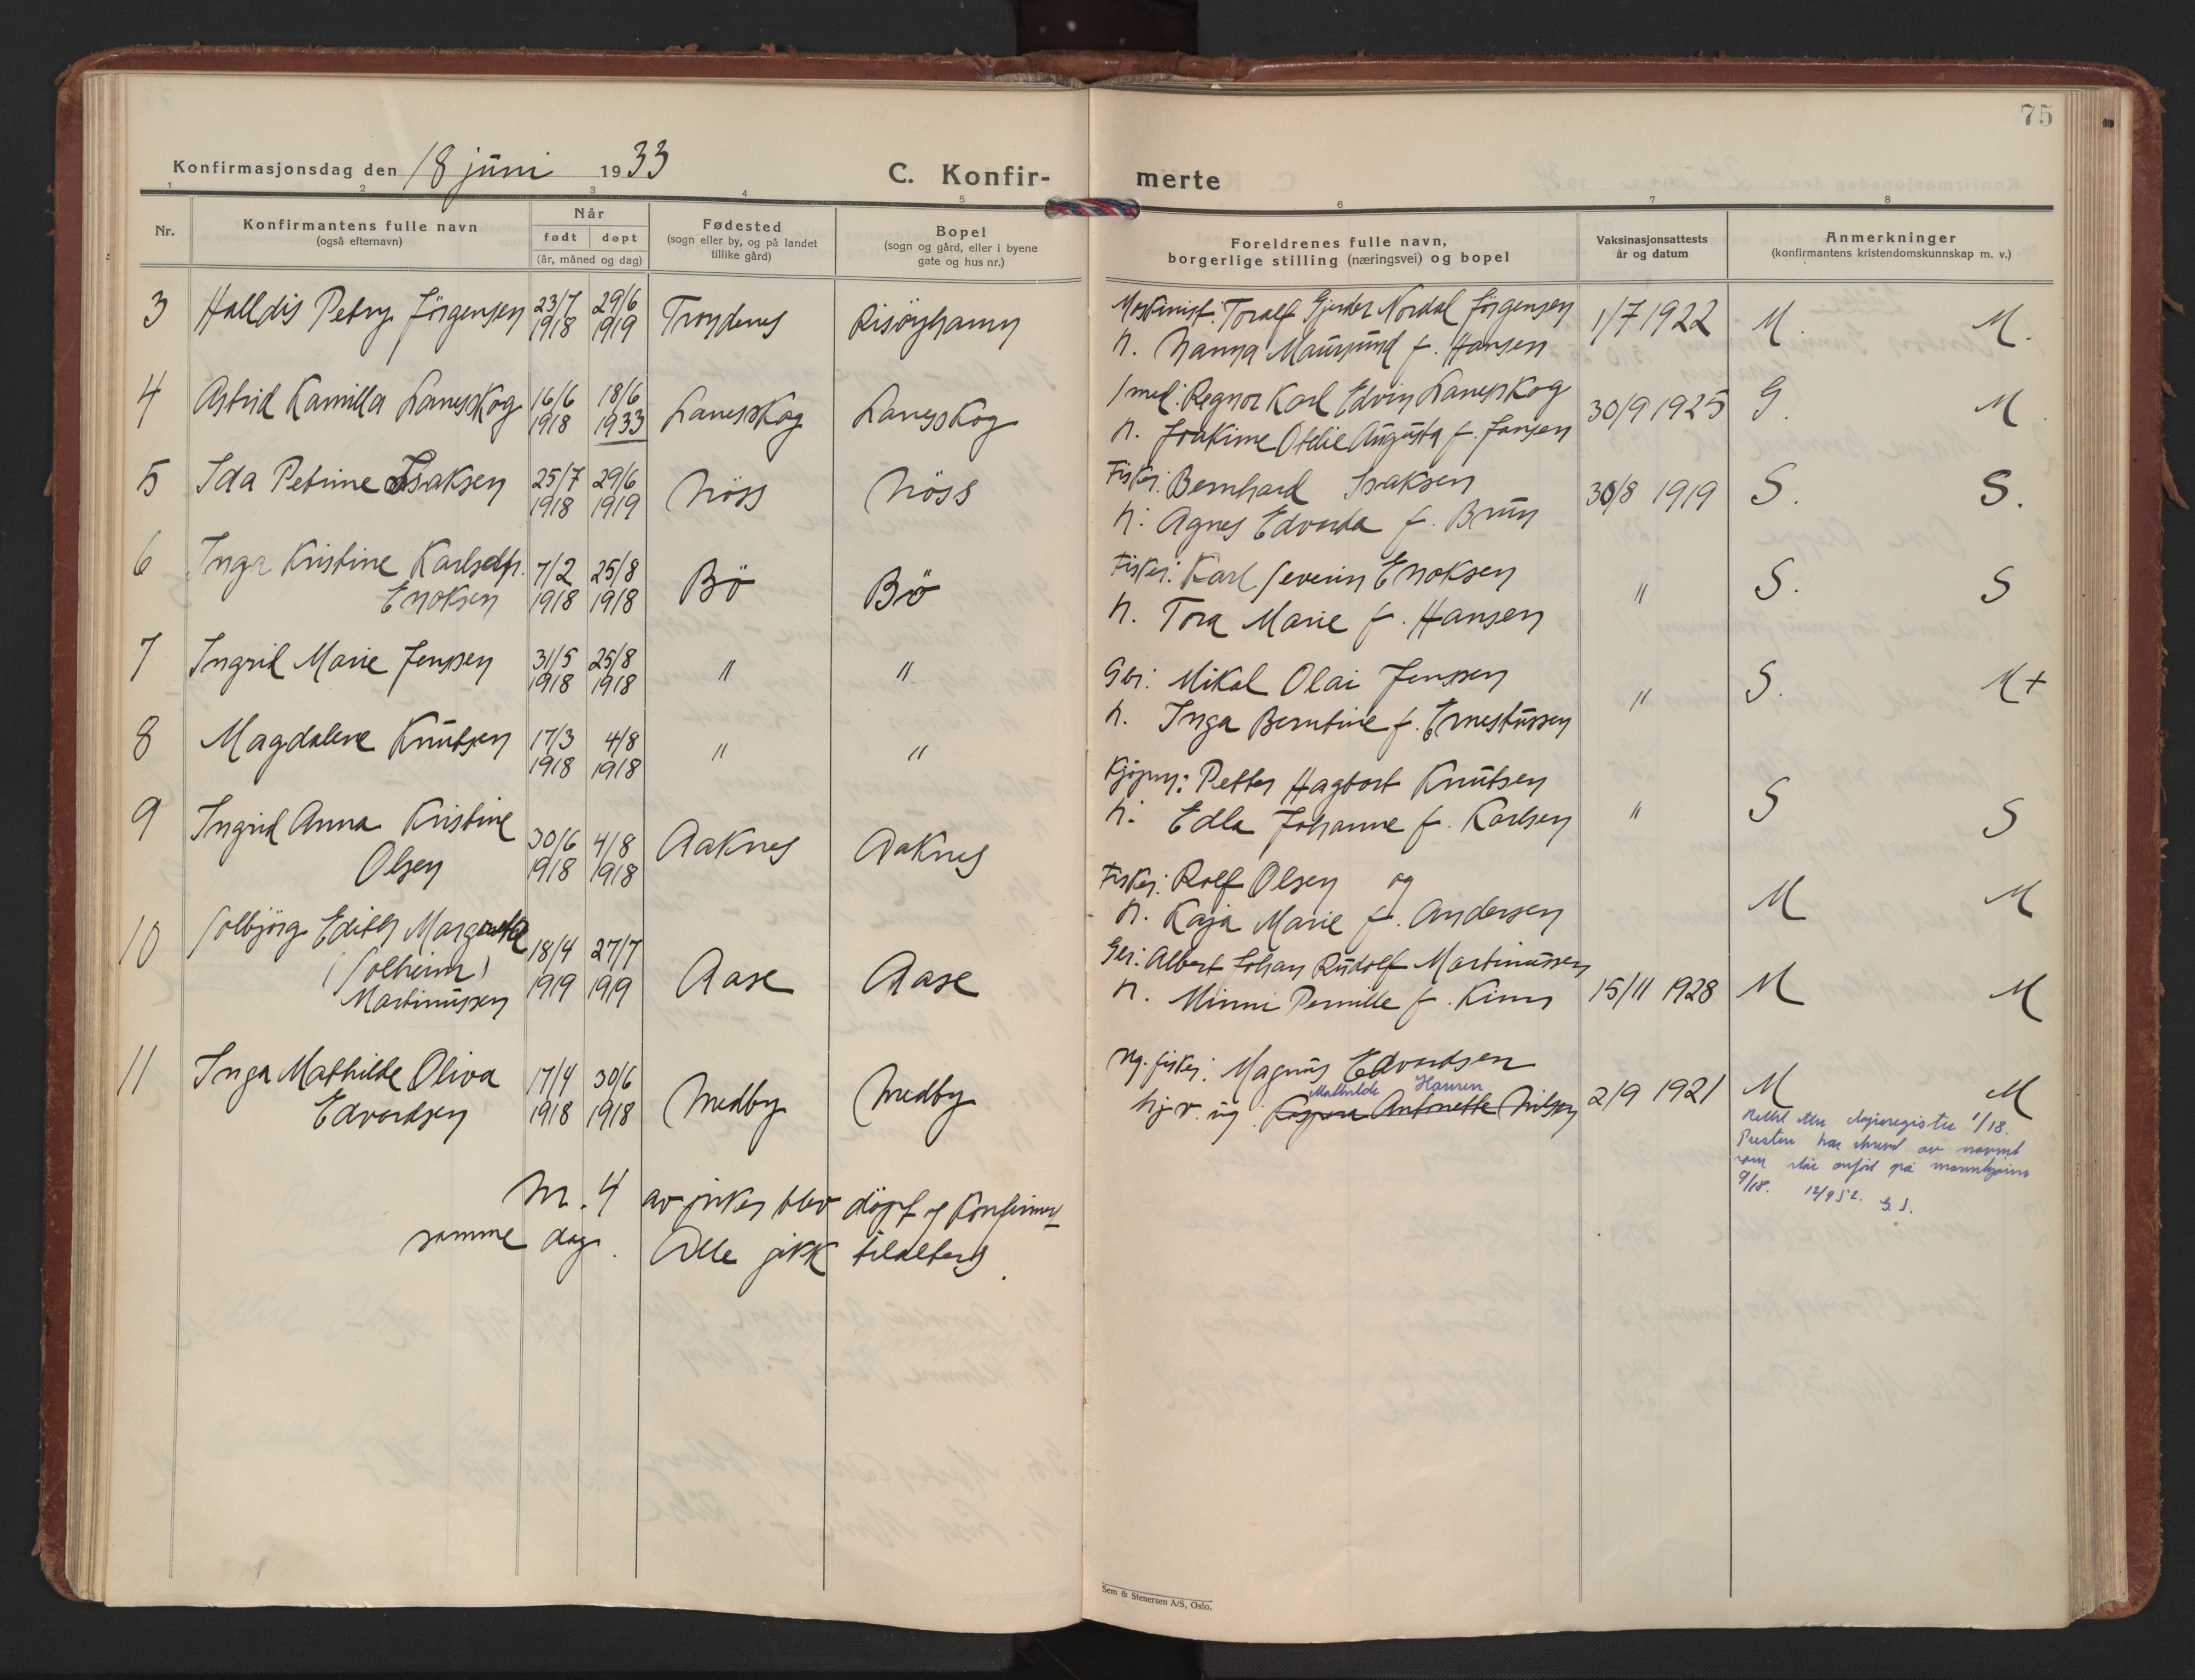 75
Konfirmasjonsdag den 18 juni 1933
C. Konfir-
merte
1 2 3 4 5 6 7 8
Nr.
Konfirmantens fulle navn
(også efternavn)
Når
født døpt
(år, måned og dag)
Fødested
(sogn eller by, og på landet
tillike gård)
Bopel
(sogn og gård, eller i byene
gate og hus nr.)
Foreldrenes fulle navn,
borgerlige stilling (næringsvei) og bopel
Vaksinasjonsattests
år og datum
Anmerkninger
(konfirmantens kristendomskunnskap m. v.)
3 Halldis Petry Jörgensen 23/7 29/6 Risöyhamn Maskinist: Toralf Nordal Jörgensen 1/7 1922 M. M.
1918 1919 h. Nanna f. Hansen
4 Astrid Kamilla Lanesskog 16/6 18/6 Lanesskog Lanesskog Regnor Karl Edvin Lanesskog 30/9 1925 G. M.
1918 1933 h. Joakime Otelie Augusta f. Jansen
5 Ida Petrine Isaksen 25/7 29/6 Nöss Nöss Fisker: Bernhard Isaksen 30/8 1919 S. S.
1918 1919 h. Agnes Edvarda f. Brun
6 Inga Kristine Karlsdtr. 7/2 25/8 Bö Bö Fisker: Karl Severin Enoksen " S. S
Enoksen 1918 1918 h. Tora Marie f. Hansen
7 Ingrid Marie Jenssen 31/5 25/8 " " Gbr: Mikal Olai Jenssen " S. M+
1918 1918 h. Inga Berntine f. Ernestussen
8 Magdalene Knutsen 17/3 4/8 " " Kjöpm: Petter Hagbart Knutsen " S S
1918 1918 h. Edla Johanne f. Karlsen
9 Ingrid Anna Kristine 30/6 4/8 Aaknes Aaknes Fisker: Rolf Olsen og M M
Olsen 1918 1918 h. Kaja Marie f. Andersen
10 Solbjörg Edith Margrethe 18/4 27/7 Aase Aase Gbr: Albert Johan Rudolf Martinussen 15/11 1928 M M
(Solheim) 1919 1919 h. Minni Pernille f.
Martinussen
11 Inga Mathilde Oliva 17/4 30/6 Medby Medby Ug. fisker: Magnus Edvardsen 2/9 1921 M M
Edvardsen 1918 1918 Mathilde Hansen
pi. v. ug. Antonette Nilsen
Rettet etter dåpsregister 1/18.
Presten har skrevet av navnet
som står anført på mannkjønn
9/18. 12/9 52. G. S.
Nr. 4 av piker blev döpt og konfirmert
samme dag. Alle gikk til alters.
Sem & Stenersen A/S, Oslo.